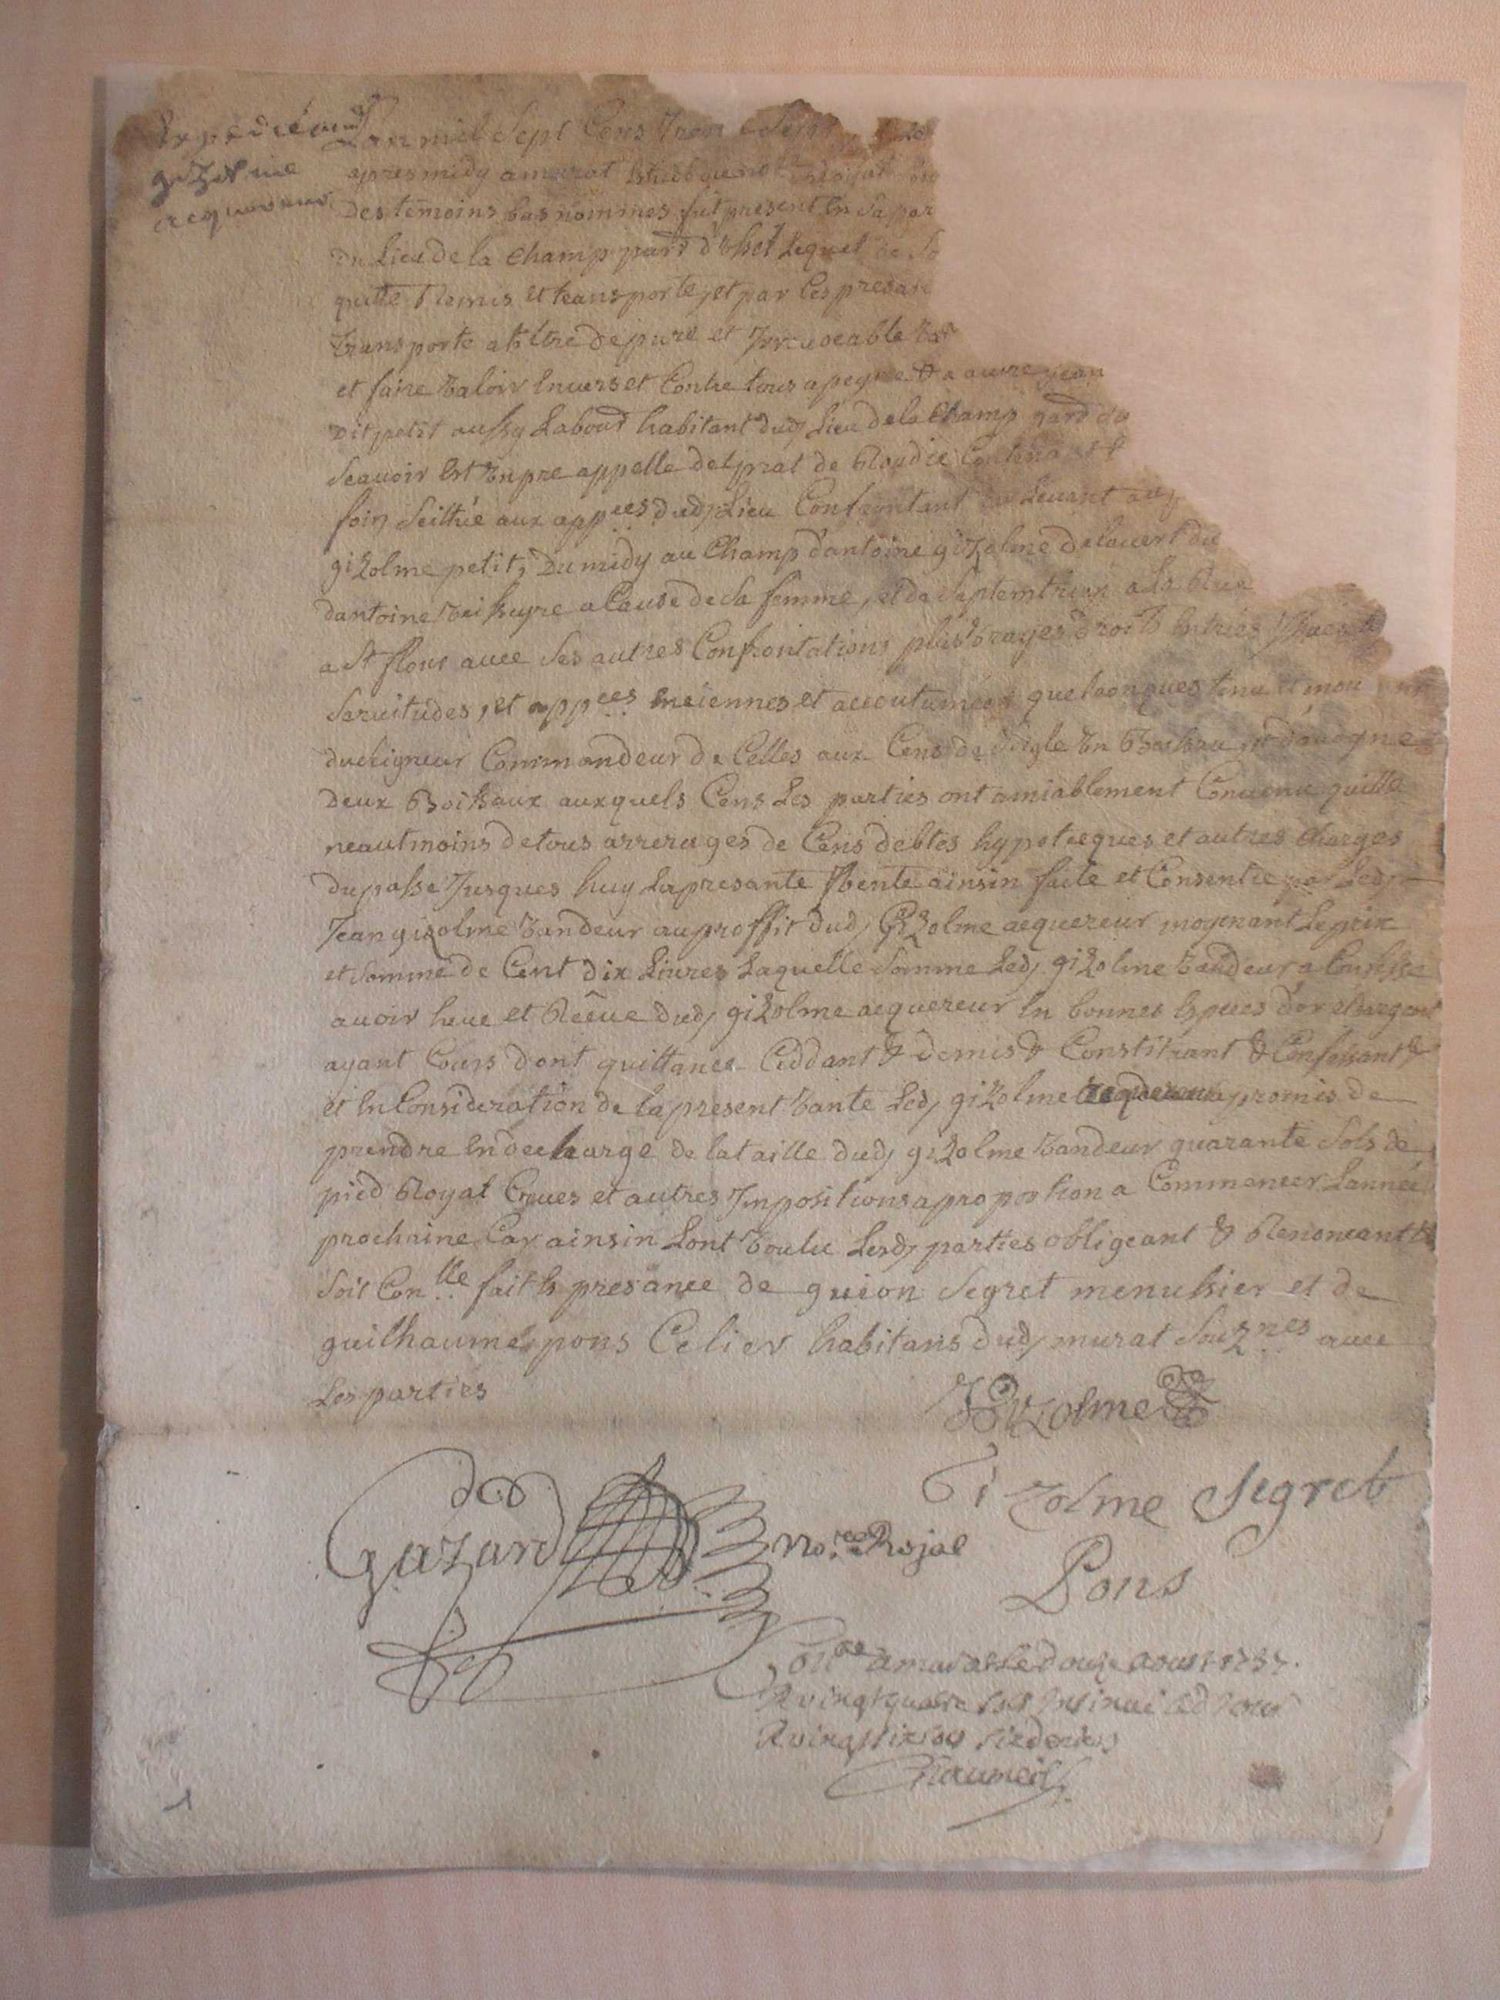 Expedié aud
gizolme
acquereur
Lan mil Sept Cens tren
apres midy a murat Estude
des temoins bas nommes fut present En Sa per
du Lieu de la Champ par d Lequel de
quitte Remis et transporte, et par Ces presan
transporte a tiltre de pure et Jrrevocable
et faire Valoir Envers et Contre tous a jean
dit petit aussy Labour habitant dud, Lieu de la Champ
Scavoir Est Un pre appelle del prat de Contenant
foin Scittué aux appces dud, Lieu Confrontant du Levant au
gizolme petit, Du midy au Champ d'antoine gizolme du
dantoine teissoyre a Cause de Sa femme, et de Septemtrion a La
a St flour avec Ses autres Confrontations plus Vrayes droits Entrées
Servitudes, et appces enciennes et accoutumées quelconques tenu et mou
du Seigneur Commandeur de Celles aux Cens de Seigle Un Boisseau
deux Boisseaux auxquels Cens Les parties ont amiablement Convenu quitte
neautmoins de tous arrerages de Cens debtes hypotecques et autres Charges
du passe Jusques huy La presante Vente ainsin faite et Consentie par Led,
Jean gizolme Vandeur au proffit dud, Gizolme acquereur moyenant Le prix
et Somme de Cent dix Livres Laquelle Somme Led, gizolme Vandeur a Confesse
avoir heue et Receue dud, gizolme acquereur En bonnes Especes d'or et argent
ayant Cours dont quittance Ceddant & demis & Constituant & Confessant &
et En Consideration de la present Vante Led, gizolme promis de
prendre En decharge de la taille dud, gizolme Vandeur quarante Sols de
pied Royal Crues et autres Jmpositions a proportion a Commancer Lannée
prochaine Car ainsin Lont Voulu Lesd, parties obligeant & Renoncant &
Soit Conlle fait En presance de guion Segret menusier et de
guilhaume pons Celier habitans dud, murat Souznes avec
Les parties
JGizolme
Gizolme Segret
Gazard nore Rojal
Pons
Conlle a murat Le douze aoust 1737.
R vingt quatre sols Jnsinué led Jour
R vingt six sols six deniers
Chaumeil